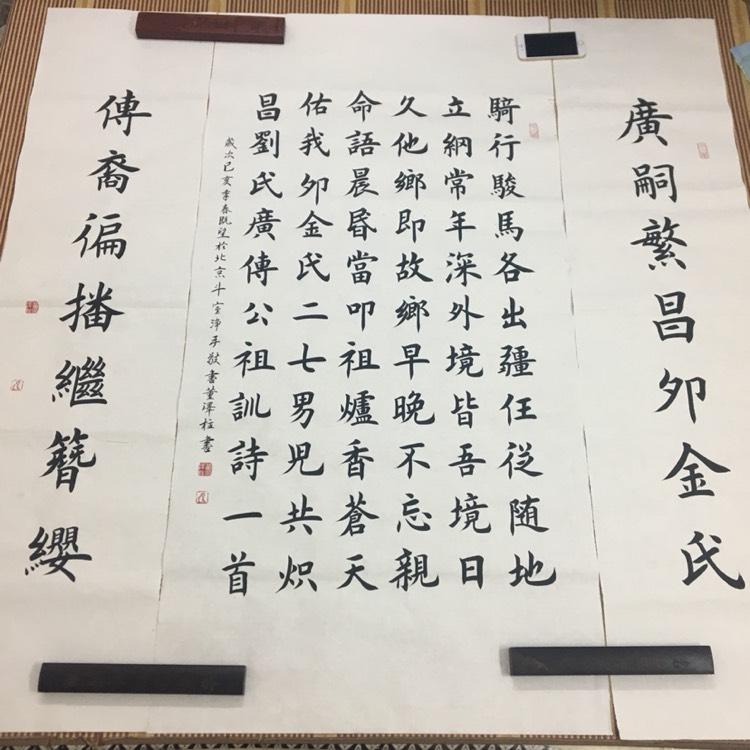 廣嗣繁昌夘金氏
騎行駿馬各出疆任從随地
立綱常年深外境皆吾境日
久他鄉即故鄉早晚不忘親
命語晨昏當叩祖爐香蒼天
佑我夘金氏二七男児共炽
昌劉氏廣傳公祖訓詩一首
歲次已亥季春既望於北京斗室淨手敬書董澤柱書
傳裔徧播繼簪纓